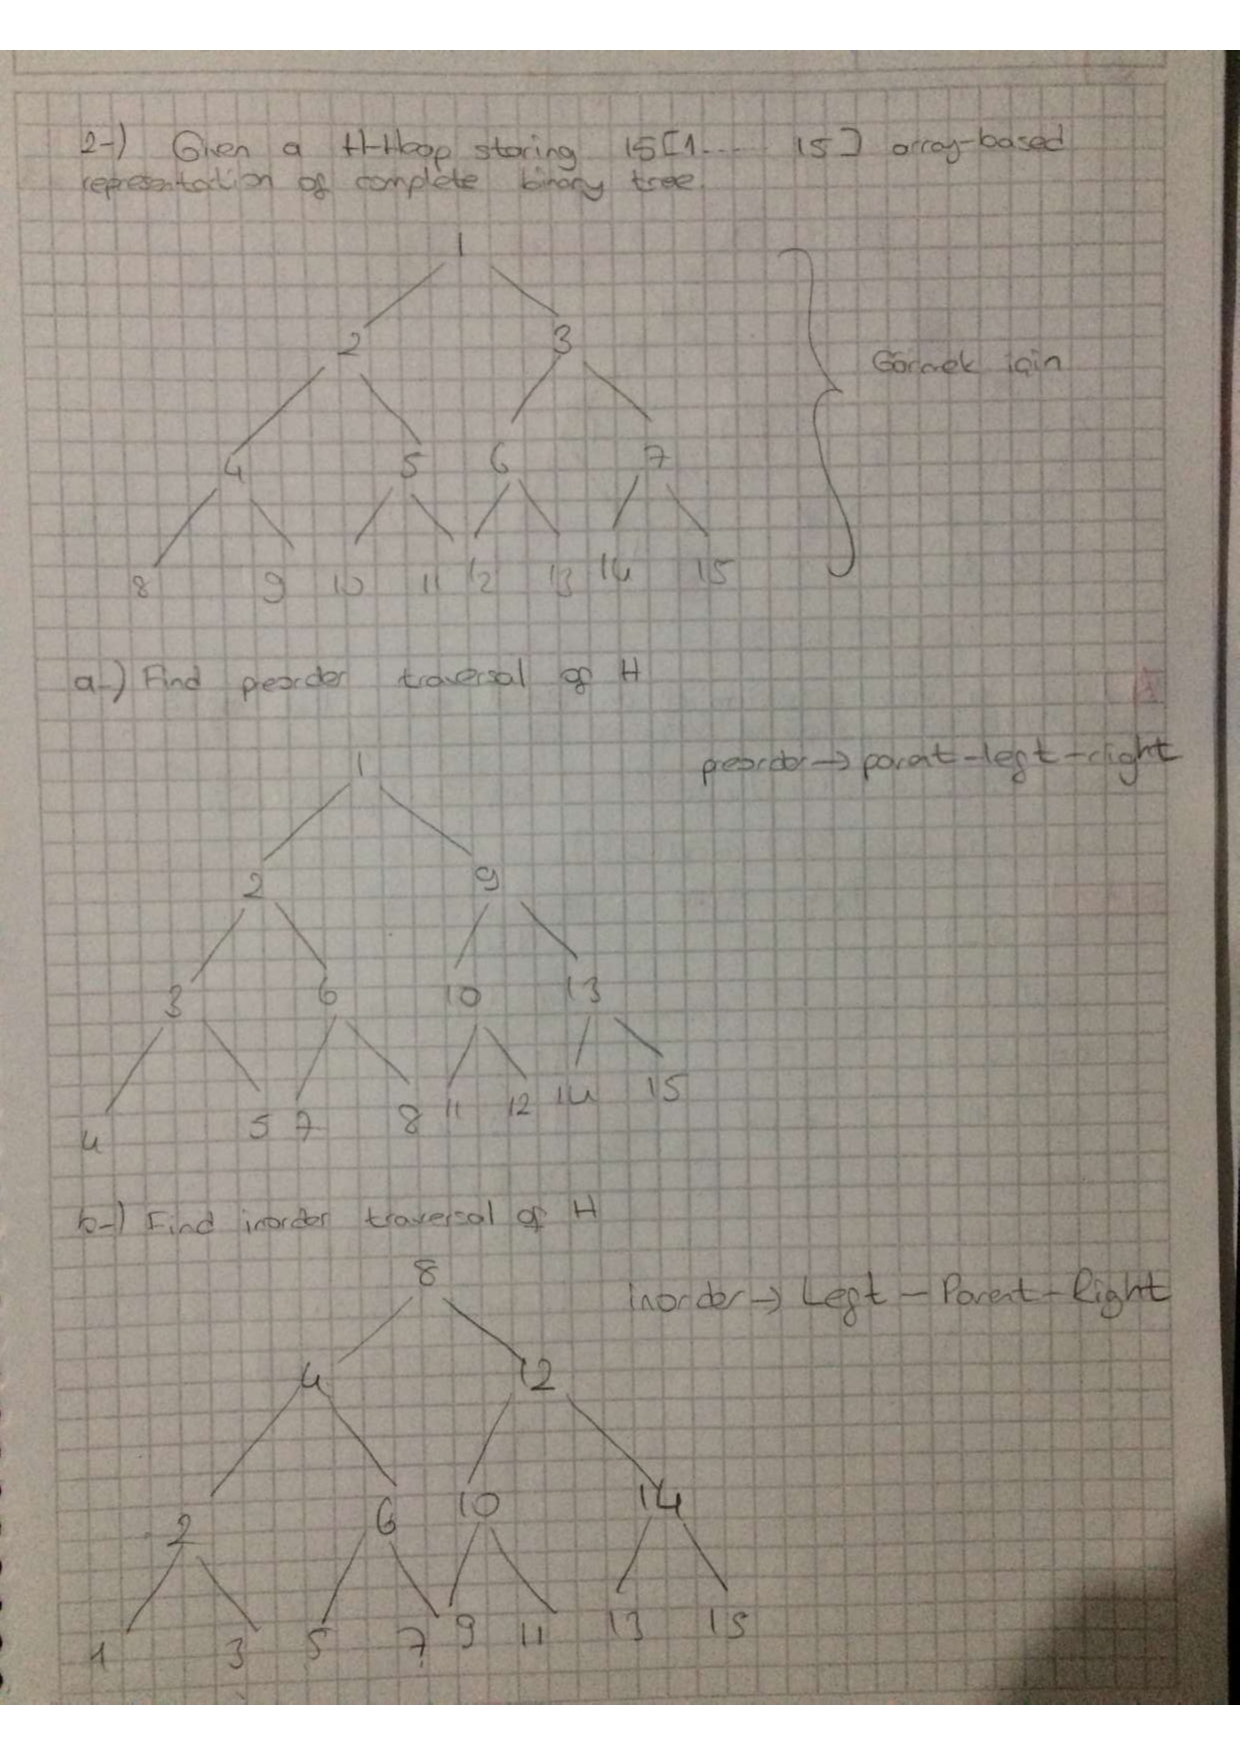 2-) Given a H-Heap storing 15[1..... 15] array-based
representation of complete binary tree.
1
2 3
Görmek için
4 5 6 7
8 9 10 11 12 13 14 15
a-) Find peorder traversal of H
preorder → parent-left-right
1
2 9
3 6 10 13
4 5 7 8 11 12 14 15
b-) Find inorder traversal of H
8
inorder → Left - Parent - Right
4 12
2 6 10 14
1 3 5 7 9 11 13 15